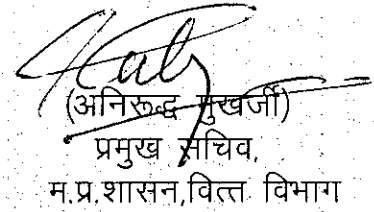 (अनिरूद्ध मुखर्जी)
प्रमुख सचिव,
म.प्र.शासन,वित्त विभाग